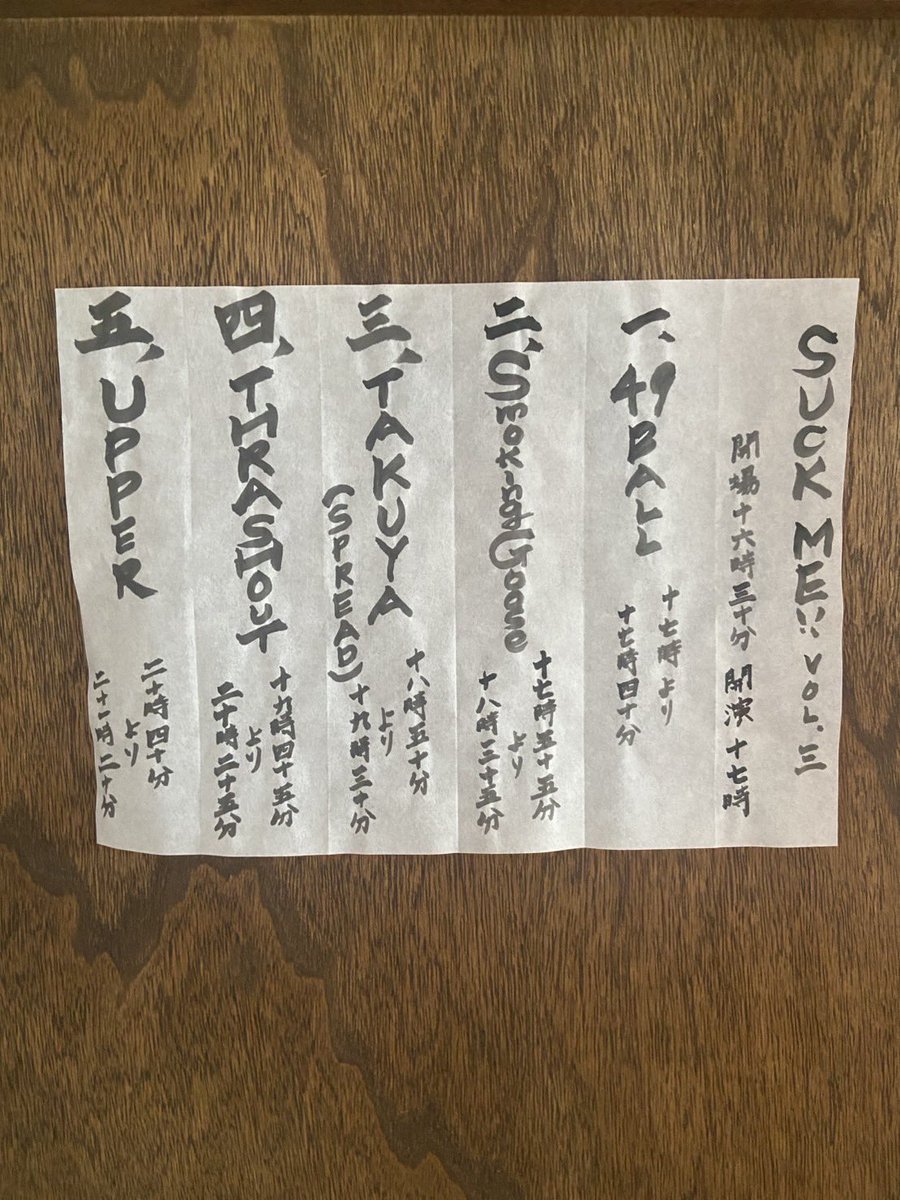 SUCK ME!! VOL.三
開場十六時三十分 開演 十七時
一、49BALL
十七時より
十七時四十分
二、Smoking Goose
十七時五十五分
より
十八時三十五分
三、TAKUYA
(SPREAD)
十八時五十分
より
十九時三十分
四、THRASHOUT
十九時四十五分
より
二十時二十五分
五、UPPER
二十時四十分
より
二十一時二十分